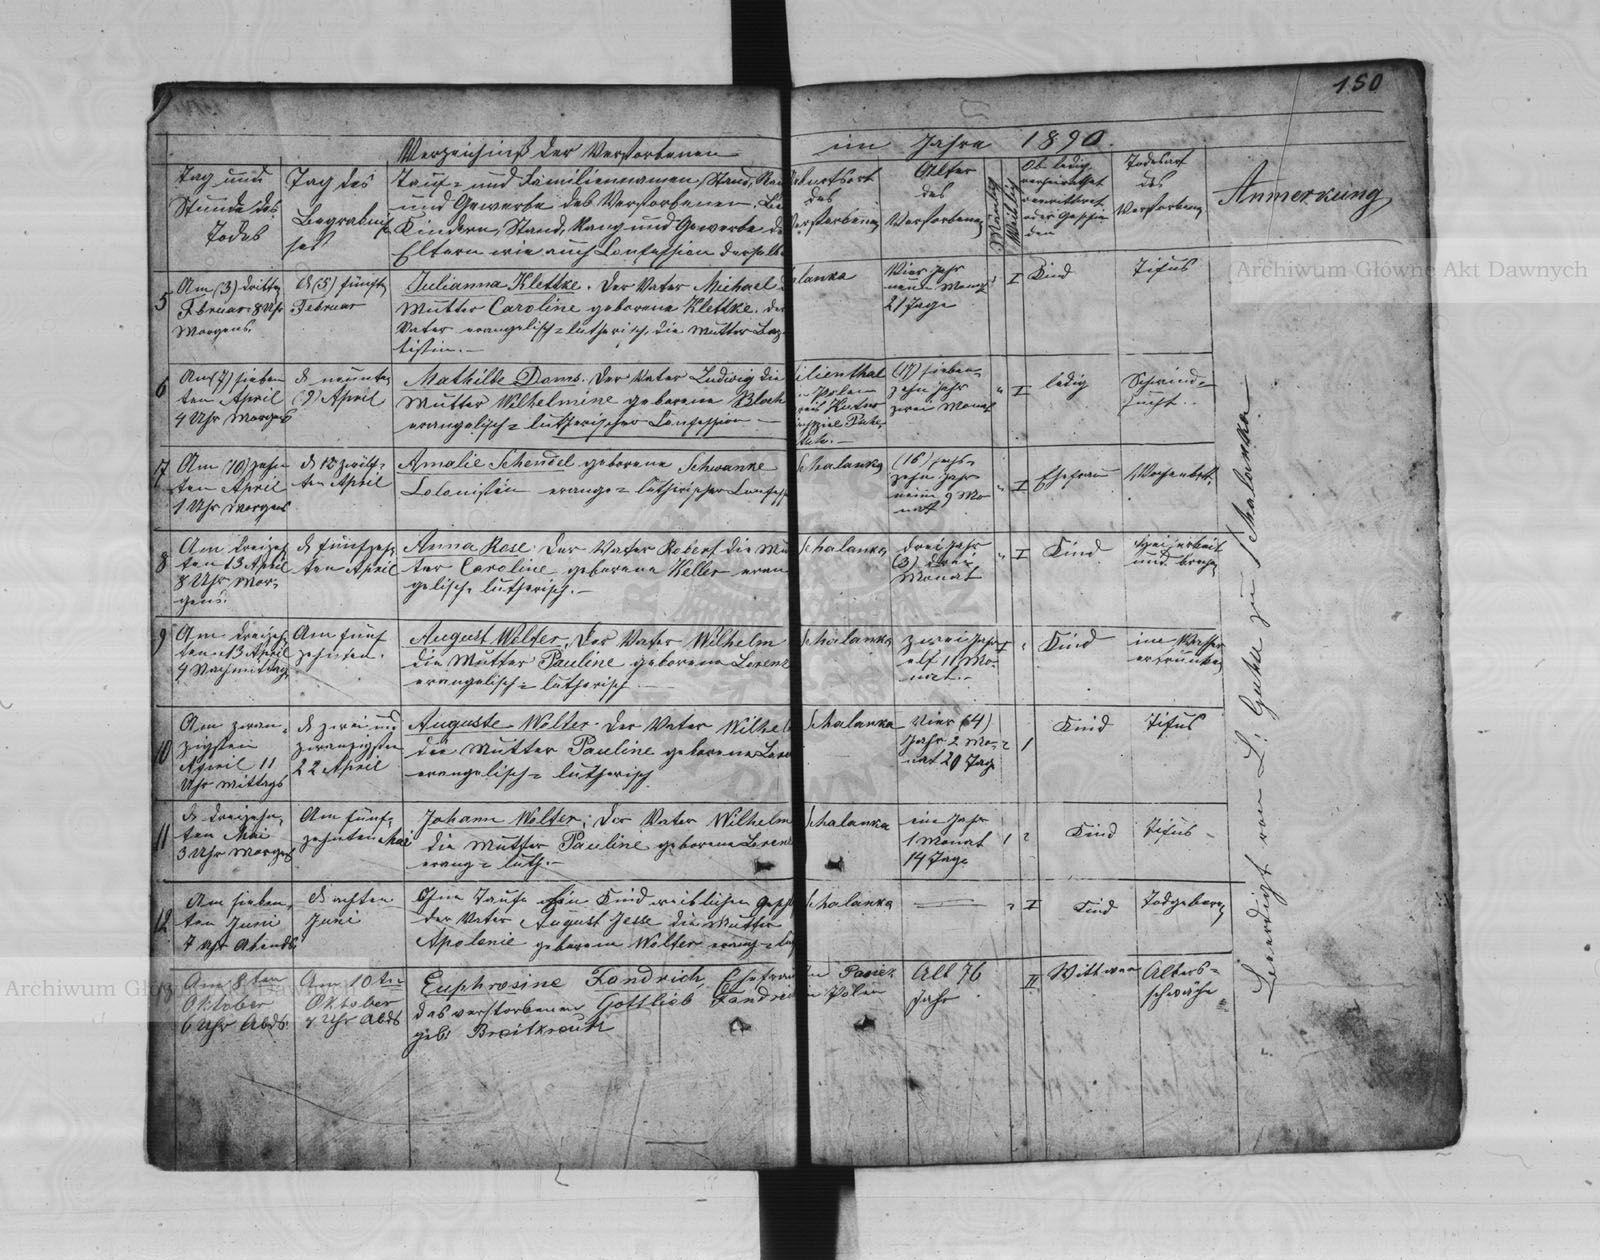 150
Verzeichniß der Verstorbenen im Jahre 1890.
Tag und Stunde des Todes
Tag des Begräbnisses
Tauf- und Familiennamen, Stand,
und Gewerbe des Verstorbenen.
Kindern, Stand, Rang und Gewerbe
Eltern wie auch Confession
des Verstorbenen
Alter des Verstorbenen
Männlich
Weiblich
Ob ledig
verheirathet
verwittwet
oder
Todesart des Verstorbenen
Anmerkung
5
Am (3) dritten
Februar 8 Uhr
Morgens
d (5) fünft
Februar
Julianna Klettke. Der Vater Michael
Mutter Caroline geborene Klettke.
Vater evangelisch-lutherisch, die Mutter Bap
tistin.
Vier Jahr
neun Monat
21 Tage
I
Kind
Tifus
6
Am (7) sieben
ten April
4 Uhr Morgens
d neunten
(9) April
Mathilde Doms. Der Vater Ludwig die
Mutter Wilhelmine geborene Bloch
evangelisch-lutherischer Confession
ilienthal
Polen
(17) sieben-
zehn Jahr
zwei Monat
I
ledig
Schwind-
sucht.
7
Am (10) zehn
ten April
1 Uhr Morgens
d 12 zwölf-
ten April
Amalie Schendel geborene Schwanke
Colonistin evange-lutherischer
Schalanka
(16) sechs-
zehn Jahr
neun 9 Mo
nat
I
Ehefrau
Wochenbett.
8
Am dreizeh
ten 13 April
8 Uhr Mor-
gens.
d fünfzeh-
ten April
Anna Rose. Der Vater Robert die Mu
ter Caroline geborene Keller evan
gelisch-lutherisch.
Schalanka
drei Jahr
(3) drei
Monat
I
Kind
9
Am dreizeh
ten 13 April
4 Nachmittag
Am fünf
zehnten.
August Wolter. Der Vater Wilhelm
die Mutter Pauline geborene Lorenz
evangelisch-lutherisch.
Schalanka
zwei Jahr
elf 11 Mo-
nat.
I
Kind
im Wasser
ertrunken
10
Am zwan-
zigsten
April 11
Uhr Mittags
d zwei und
zwanzigsten
22 April
Auguste Wolter. Der Vater Wilhel
die Mutter Pauline geborene
evangelisch-lutherisch
Schalanka
Vier (4)
Jahr 2 Mo-
nat 20 Tage
1
Kind
Tifus
11
d dreizehn
ten Mai
3 Uhr Morgens
Am fünf-
zehnten Mai
Johann Wolter; Der Vater Wilhelm
die Mutter Pauline geborene Lorenz
evang-luth.
Schalanka
ein Jahr
1 Monat
14 Tage
1
Kind
Tifus
12
Am sieben
ten Juni
7 Uhr Abends
d achten
Juni
Ohne Taufe ein Kind weiblichen
der Vater August Jesse die Mutter
Apolonie geborene Wolter evang-
Schalanka
I
Kind
Todgeboren
Am 8ten
Oktober
6 Uhr Abds.
Am 10ten
Oktober
Uhr Abds
Euphrosine Fandrich, Ehefrau
des verstorbenen Gottlieb Fandrich
geb. Breitkreutz
in Polen
Alt 76
Jahr
II
Wittwe
Alters-
schwäche
Beerdigt von L. Guhu zu Schalanka
Archiwum Główne Akt Dawnych
Archiwum Główne Akt Dawnych